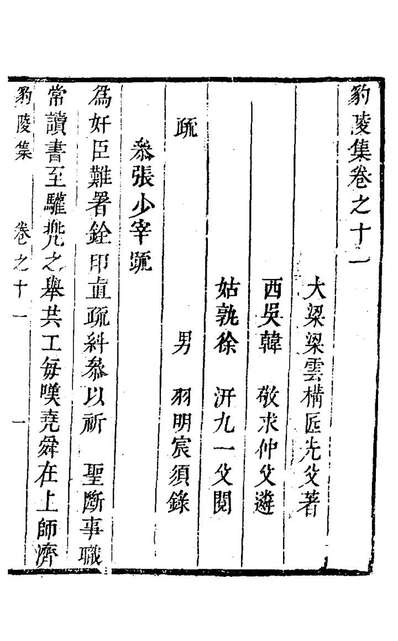 豹陵集卷之十一
大梁梁雲構匠先父著
西吳韓　敬求仲父選
姑孰徐　汧九一父閱
男　羽明宸須錄
疏
叅張少宰疏
為奸臣難署銓印直疏糾叅以祈　聖斷事職
常讀書至驩兠之舉共工每嘆堯舜在上師濟
豹陵集　卷之十一　一